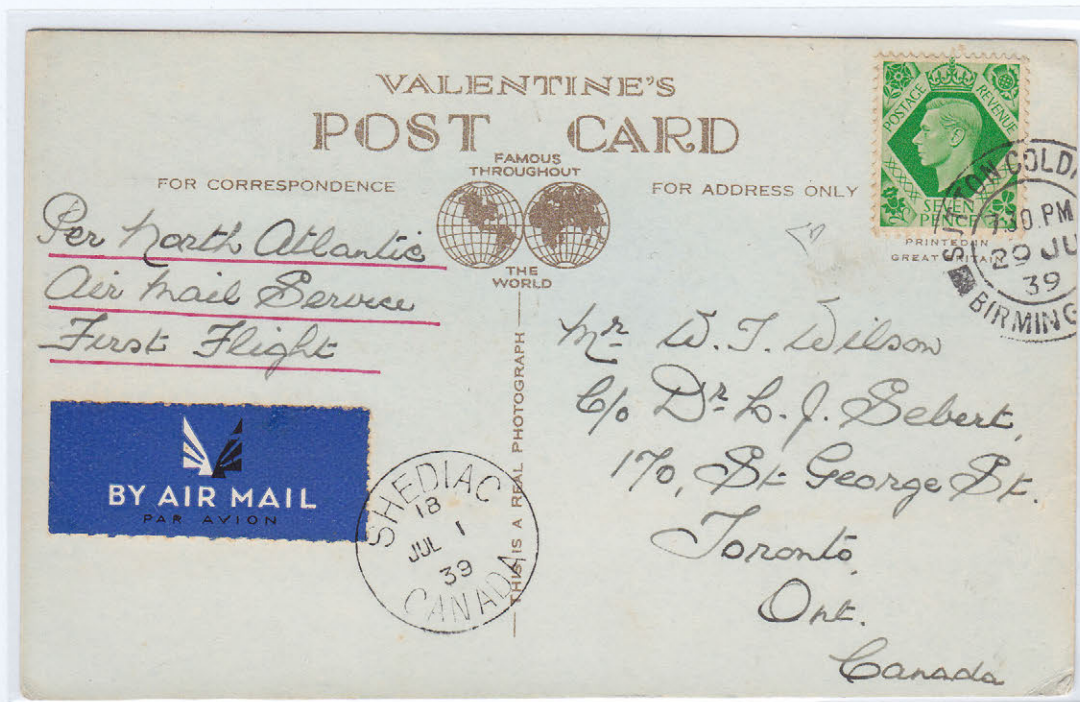 VALENTINE'S
POST CARD
FAMOUS
THROUGHOUT
THE
WORLD
FOR CORRESPONDENCE
FOR ADDRESS ONLY
POSTAGE
REVENUE
SEVEN
PENCE
PRINTED IN
GREAT BRITAIN
SUTTON COLD
7.30 PM
29 JU
39
BIRMING
Per North Atlantic
Air Mail Service
First Flight
BY AIR MAIL
PAR AVION
SHEDIAC
18
JUL 1
39
CANADA
THIS IS A REAL PHOTOGRAPH
Mr. W. T. Wilson
C/o Dr. L. J. Sebert,
170, St. George St.
Toronto,
Ont.
Canada